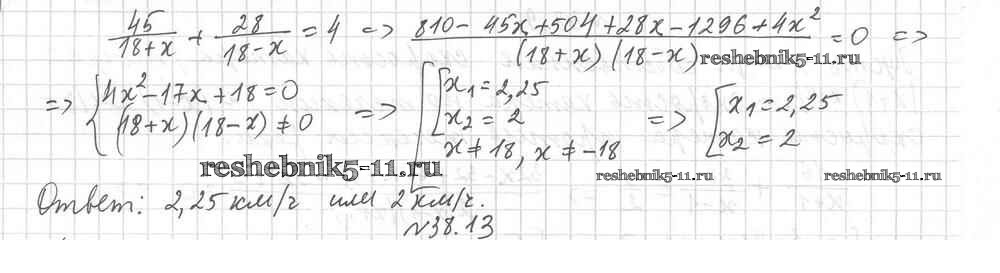 45/(18+x) + 28/(18-x) = 4 => (810 - 45x + 504 + 28x - 1296 + 4x²)/((18+x)(18-x)) = 0 =>
reshebnik5-11.ru
=> { 4x² - 17x + 18 = 0 (18+x)(18-x) ≠ 0 => [ [ x₁ = 2,25 x₂ = 2 x ≠ 18, x ≠ -18 => [ x₁ = 2,25 x₂ = 2
reshebnik5-11.ru
reshebnik5-11.ru
reshebnik5-11.ru
Ответ: 2,25 км/ч или 2 км/ч.
№38.13